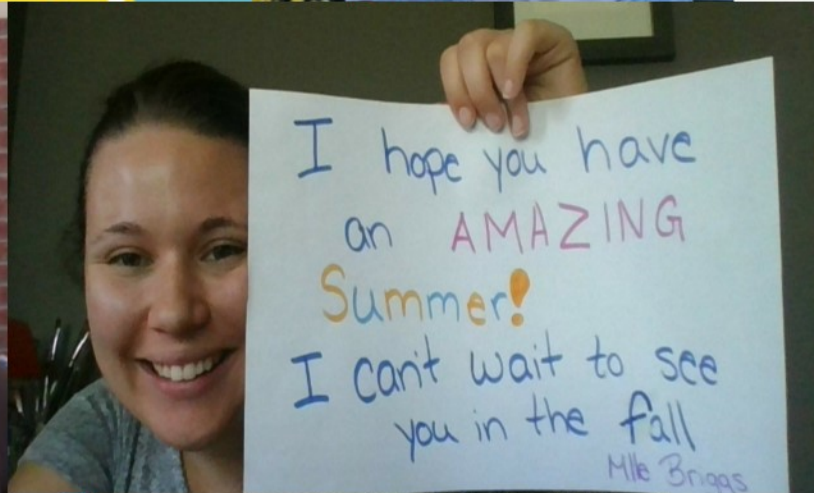 I hope you have
an AMAZING
Summer!
I can't wait to see
you in the fall
Mlle Briggs